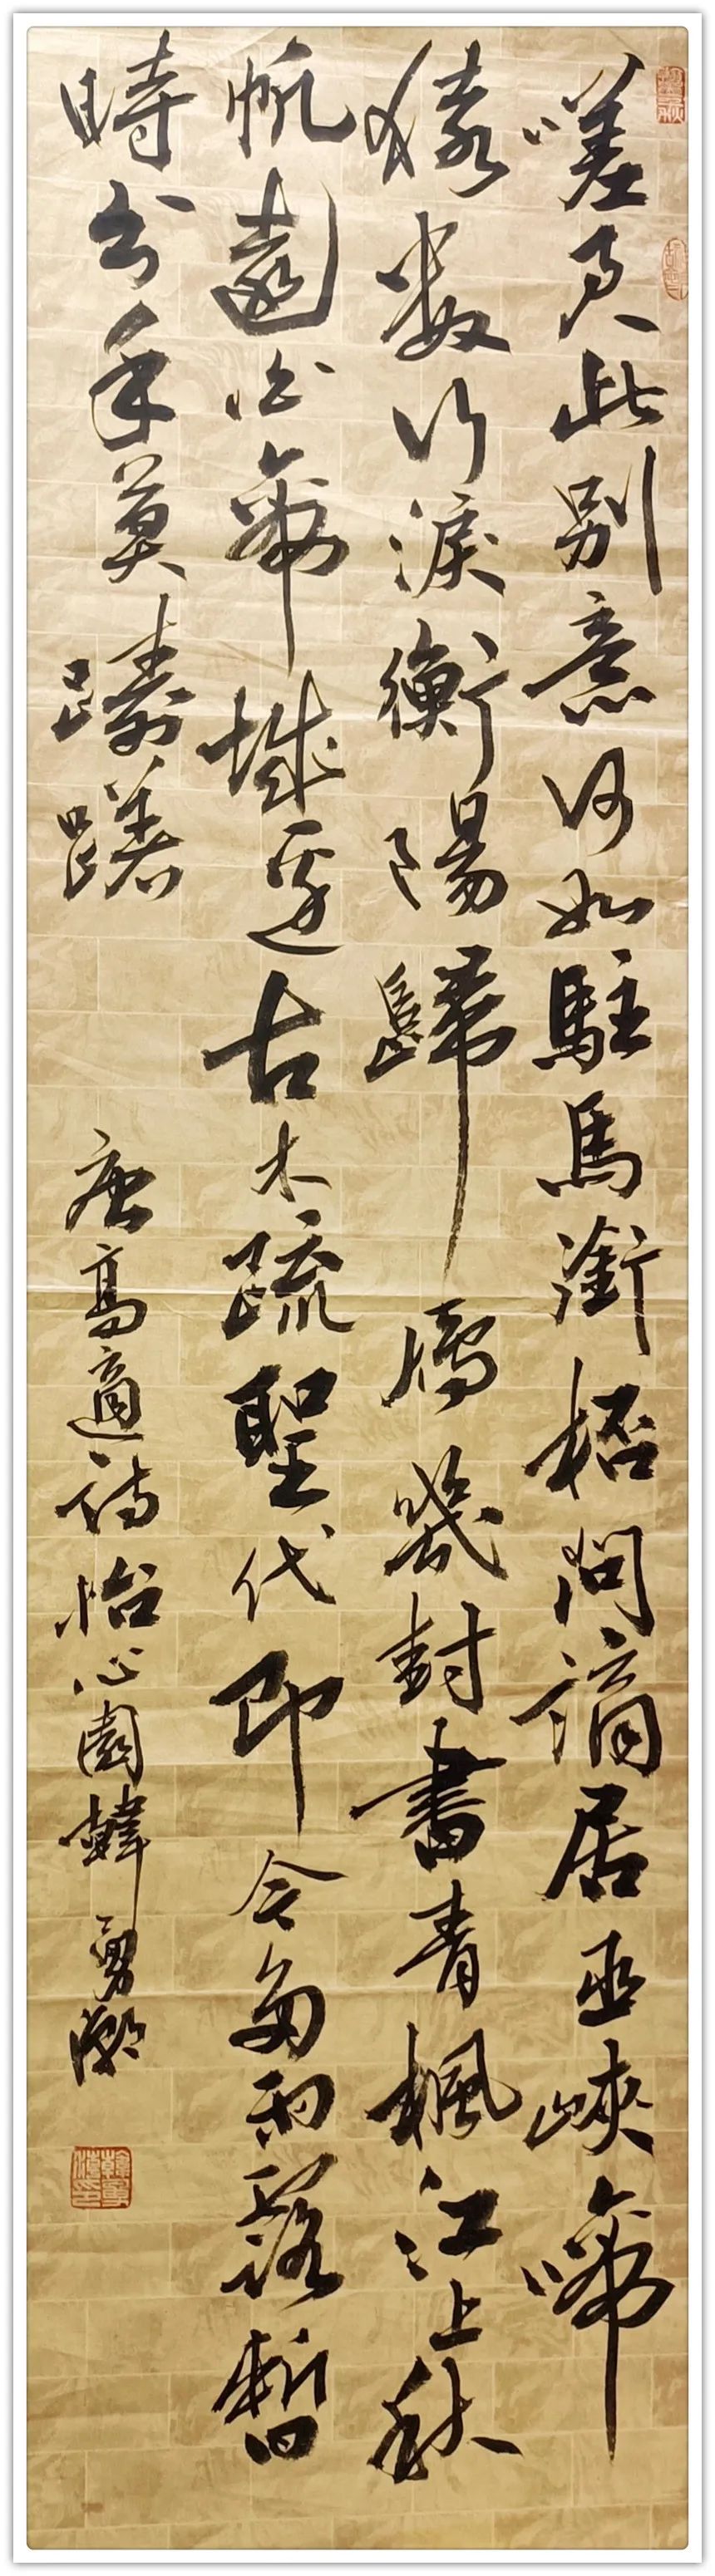 嗟君此別意何如駐馬銜桮問謫居巫峽啼
猿數行淚衡陽歸鴈幾封書青楓江上秋
帆遠白帝城邊古木疏聖代即今多雨露暫
時分手莫躊躇
唐高適詩怡心園韓勇